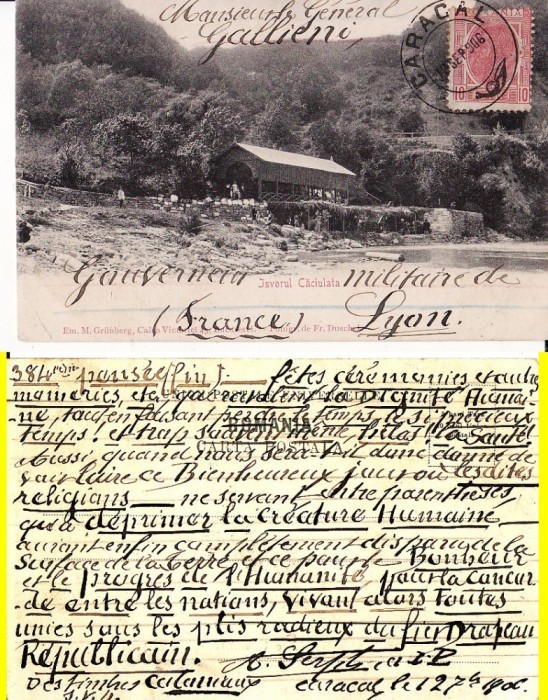 Monsieur le Général
Gallieni,
CARACAL
SEP 906
10 10
Gouverneur militaire de
Isvorul Căciulata
(France) Lyon.
Em. M. Grünberg, Calea Victoriei de Fr. Duschek
384 pensée (fin). fêtes cérémonies et autres
mameries, et avarandir la Dignité Humai-
ne, tout en faisant perdre le temps, le si précieux
temps, et trop souvent même hélas la Santé
ROMANIA
Aussi, quand nous sera-t-il donc donné de
CARTA POSTALA
voir luire ce Bienheureux jour où les dites
religions ne servant entre parenthèses
qu'à déprimer la Créature Humaine
auront enfin complètement disparu de la
Surface de la Terre et ce pour le Bonheur
et le progrès de l'Humanité, pour la concor
-de entre les nations, vivant alors Toutes
unies sous les plis radieux du fier Drapeau
Républicain.
Des timbres Calamieux Caracal le 1 27